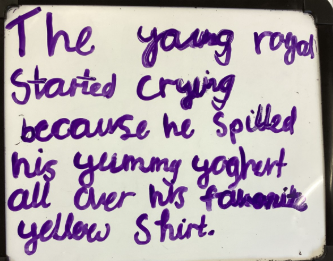 The young royal
Started crying
because he spilled
his yummy yoghurt
all over his favourite
yellow Shirt.